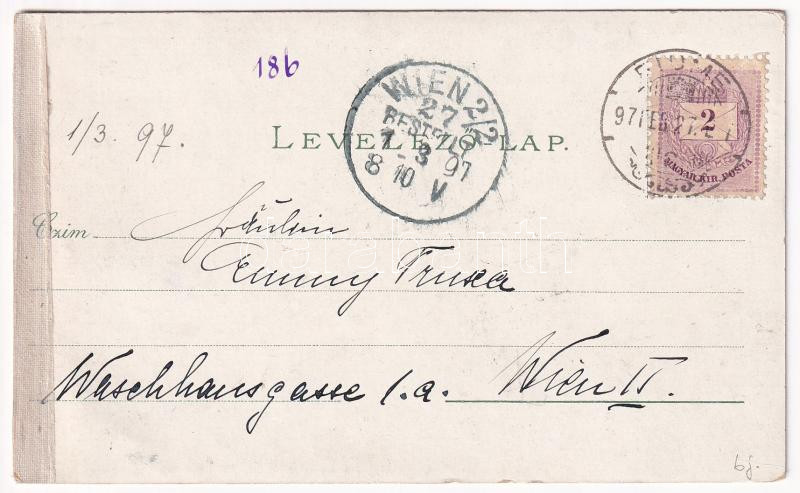 186
WIEN 2/2
27
BESTELLT
7 3 97
8 10 V
97 FEB 27
2
MAGYAR KIR. POSTA
1/3 97.
LEVELEZŐ-LAP.
Czim
Fräulein
Emmy Truxa
Waschhausgasse 1.a. Wien II.
bj.